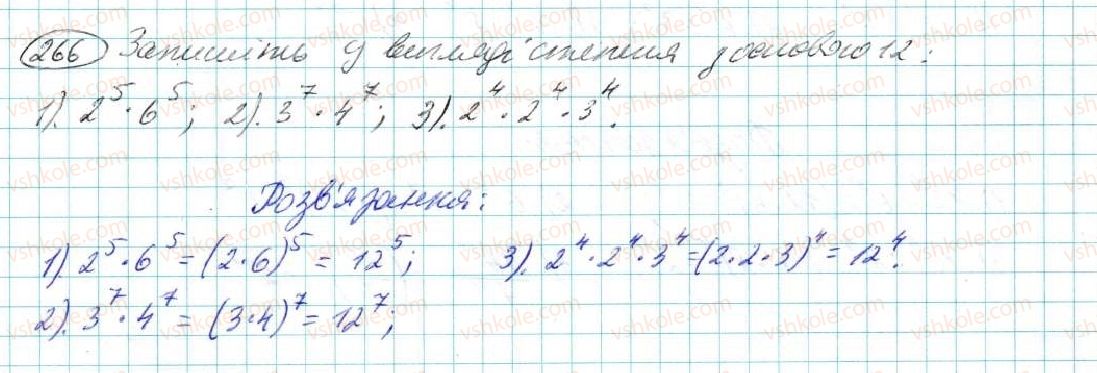 266 Запишіть у вигляді степеня з основою 12:
1). 2⁵ · 6⁵; 2). 3⁷ · 4⁷; 3). 2⁴ · 2⁴ · 3⁴.
Розв'язання:
1) 2⁵ · 6⁵ = (2 · 6)⁵ = 12⁵; 3). 2⁴ · 2⁴ · 3⁴ = (2 · 2 · 3)⁴ = 12⁴.
2). 3⁷ · 4⁷ = (3 · 4)⁷ = 12⁷;
vshkole.com